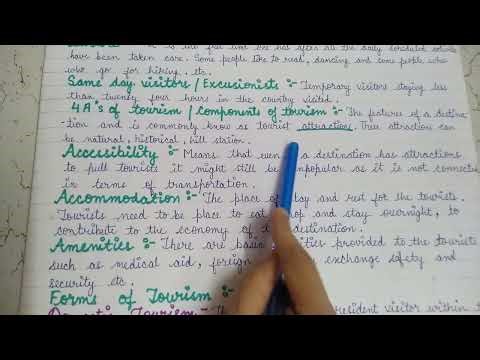 is the free time one has after all the daily scheduled work
have been taken care. Some people like to read, dancing and some people who
who go for hiking etc.
Same day visitors / Excusionists :- Temporary visitors staying less
than twenty four hours in the country visited.
4 A's of tourism / Components of tourism :- The features of a destina
-tion and is commonly know as tourist attractions. These attractions can
be natural, historical, hill station.
Accessibility :- Means that even a destination has attractions
to pull tourists it might still be unpopular as it is not connected
in terms of transportation.
Accommodation :- The place of stay and rest for the tourists.
Tourists need to be place to eat and stay overnight, to
contribute to the economy of destination.
Amenities :- There are basic provided to the tourists
such as medical aid, foreign exchange safety and
security etc.
Forms of Tourism :-
Domestic Tourism :- resident visitor within